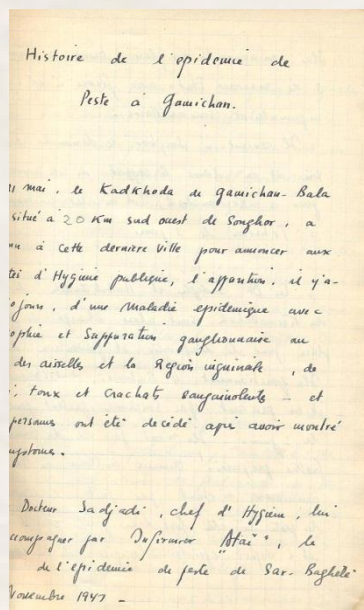 Histoire de l'epidemie de
Peste à Gamichan.
mai, le Kadkhoda de gamichan-Bala
situé à 20 Km sud ouest de Songhor, a
à cette derniere ville pour annoncer aux
d'Hygiene publique, l'apparition, il y'a
jours, d'une maladie epidemique avec
et Suppuration ganglionnaire au
des aisselles et la Region inguinale, de
toux et crachats sanguinolents - et
personnes ont été decidé apri avoir montré
Docteur Sadjadi, chef d'Hygiene, lui
par Infirmier "Ataï", le
de l'epidemie de peste de Sar-Baghelé
Novembre 1947 -